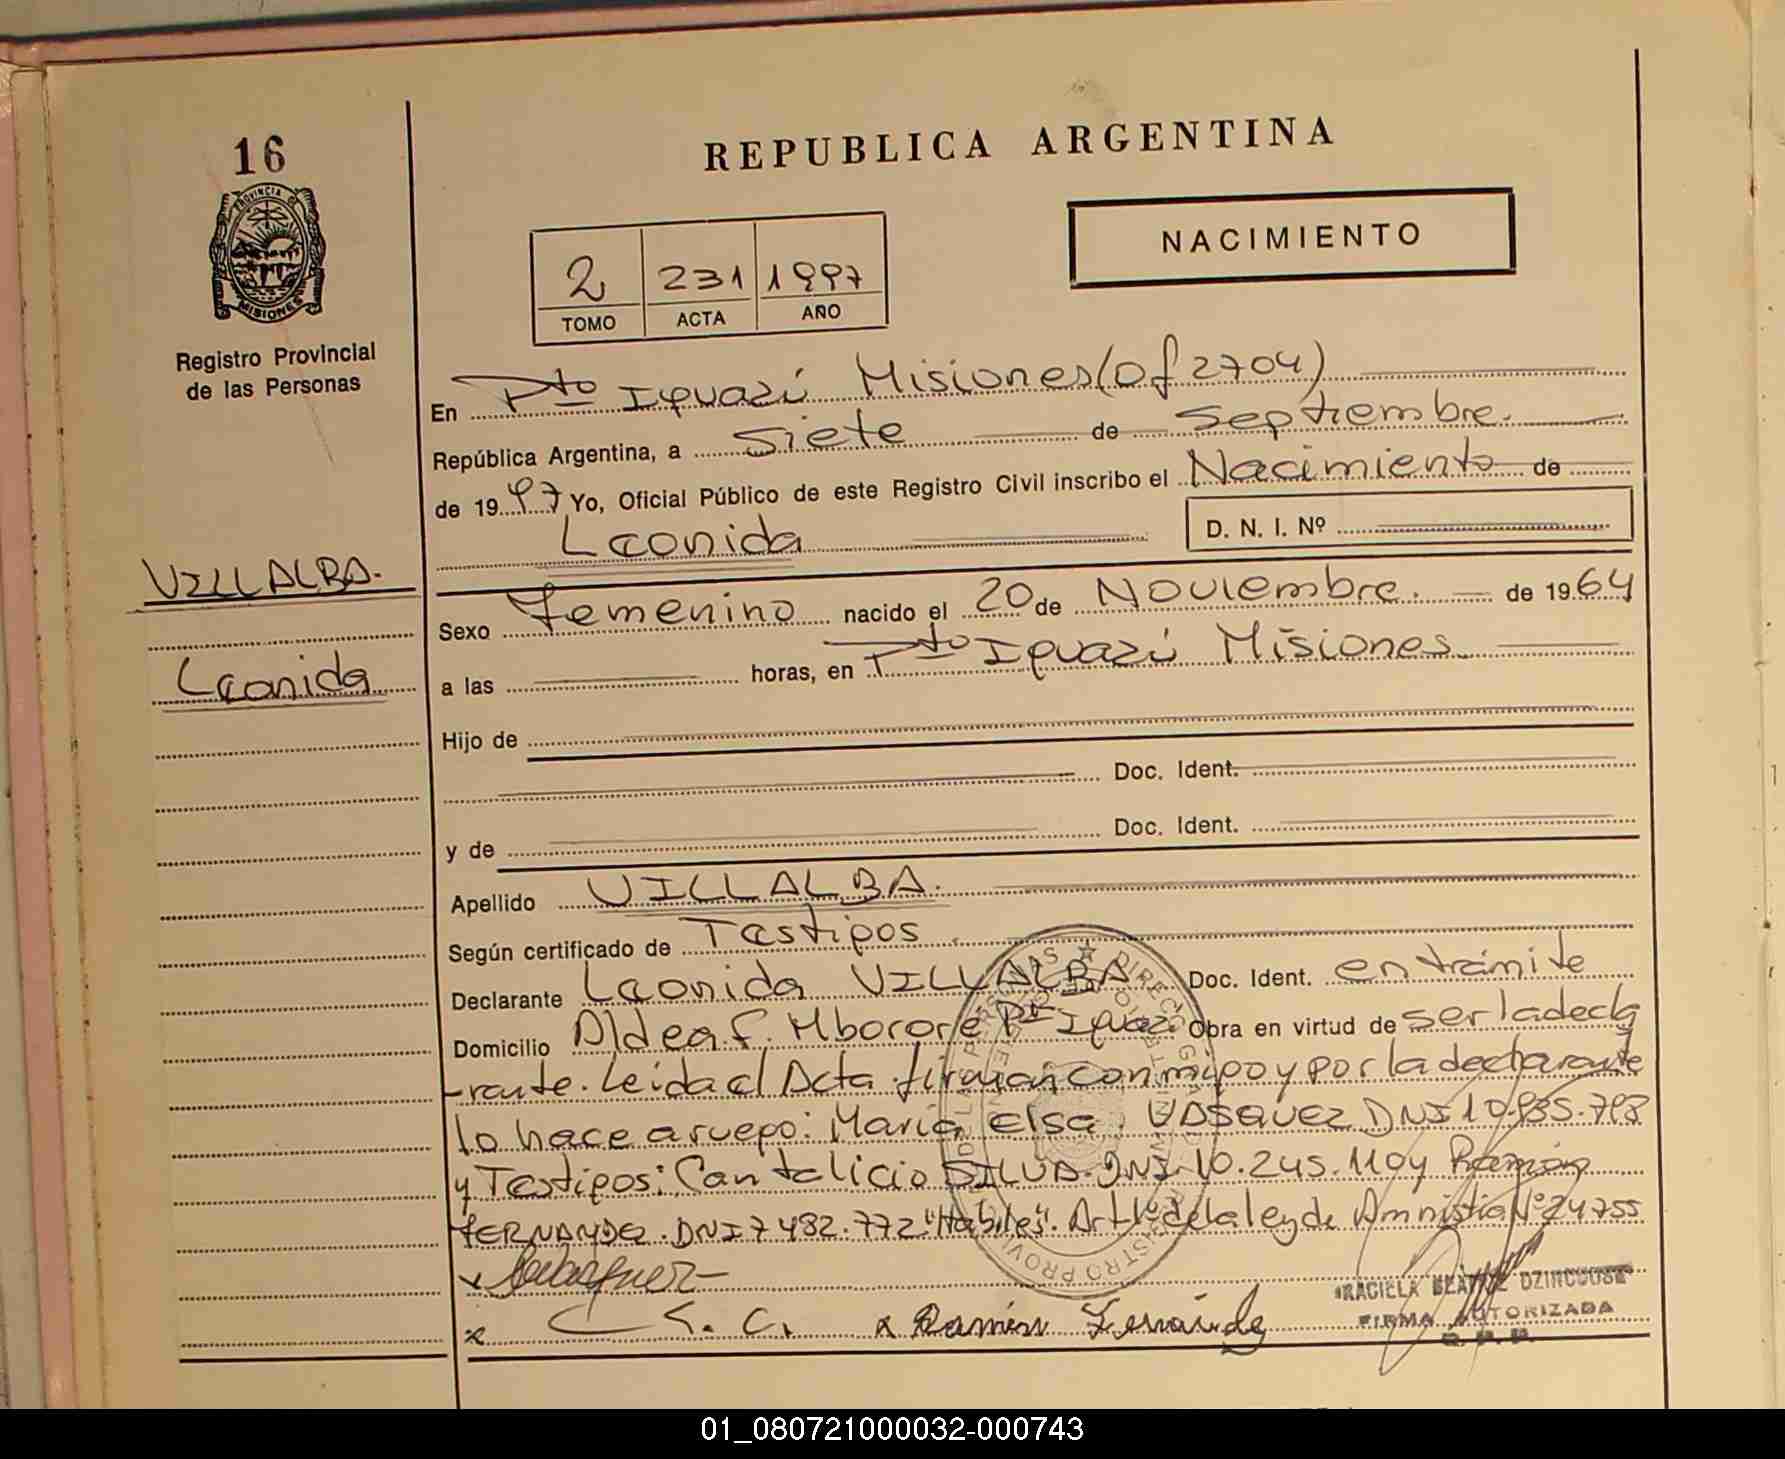 16
PROVINCIA DE
MISIONES
Registro Provincial
de las Personas
VILLALBA.
Leonida
REPUBLICA ARGENTINA
NACIMIENTO
2 231 1997
TOMO ACTA AÑO
En Pto Iguazú Misiones (Of 2704)
República Argentina, a siete de septiembre.
de 1997 Yo, Oficial Público de este Registro Civil inscribo el Nacimiento de
Leonida D. N. I. Nº
Sexo Femenino nacido el 20 de Noviembre. de 1964
a las horas, en Pto Iguazú Misiones
Hijo de
Doc. Ident.
y de Doc. Ident.
Apellido VILLALBA.
Según certificado de Testigos
Declarante Leonida VILLALBA Doc. Ident. en trámite
Domicilio Aldea F. Mborore Pto Iguazú Obra en virtud de ser la decla
rante. Leida el Acta firman conmigo y por la declarante
lo hace a ruego: María Elsa VASQUEZ DNI 10.935.793
y Testigos: Cantalicio SILVA. DNI 10.245.110 y Ramón
FERNANDEZ. DNI 7482.772 "Habiles". Art 1º de la ley de Amnistia Nº 24755
x
x S. C. x Ramón Fernández
GRACIELA BEATRIZ
FIRMA AUTORIZADA
R.P.P.
01_080721000032-000743